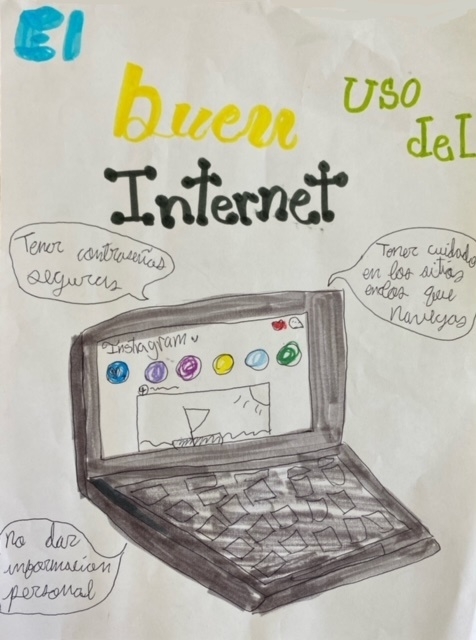 El
buen
uso
del
Internet
Tener contraseñas
seguras
Tener cuidado
en los sitios
en los que
navegas
Instagram
no dar
informacion
personal